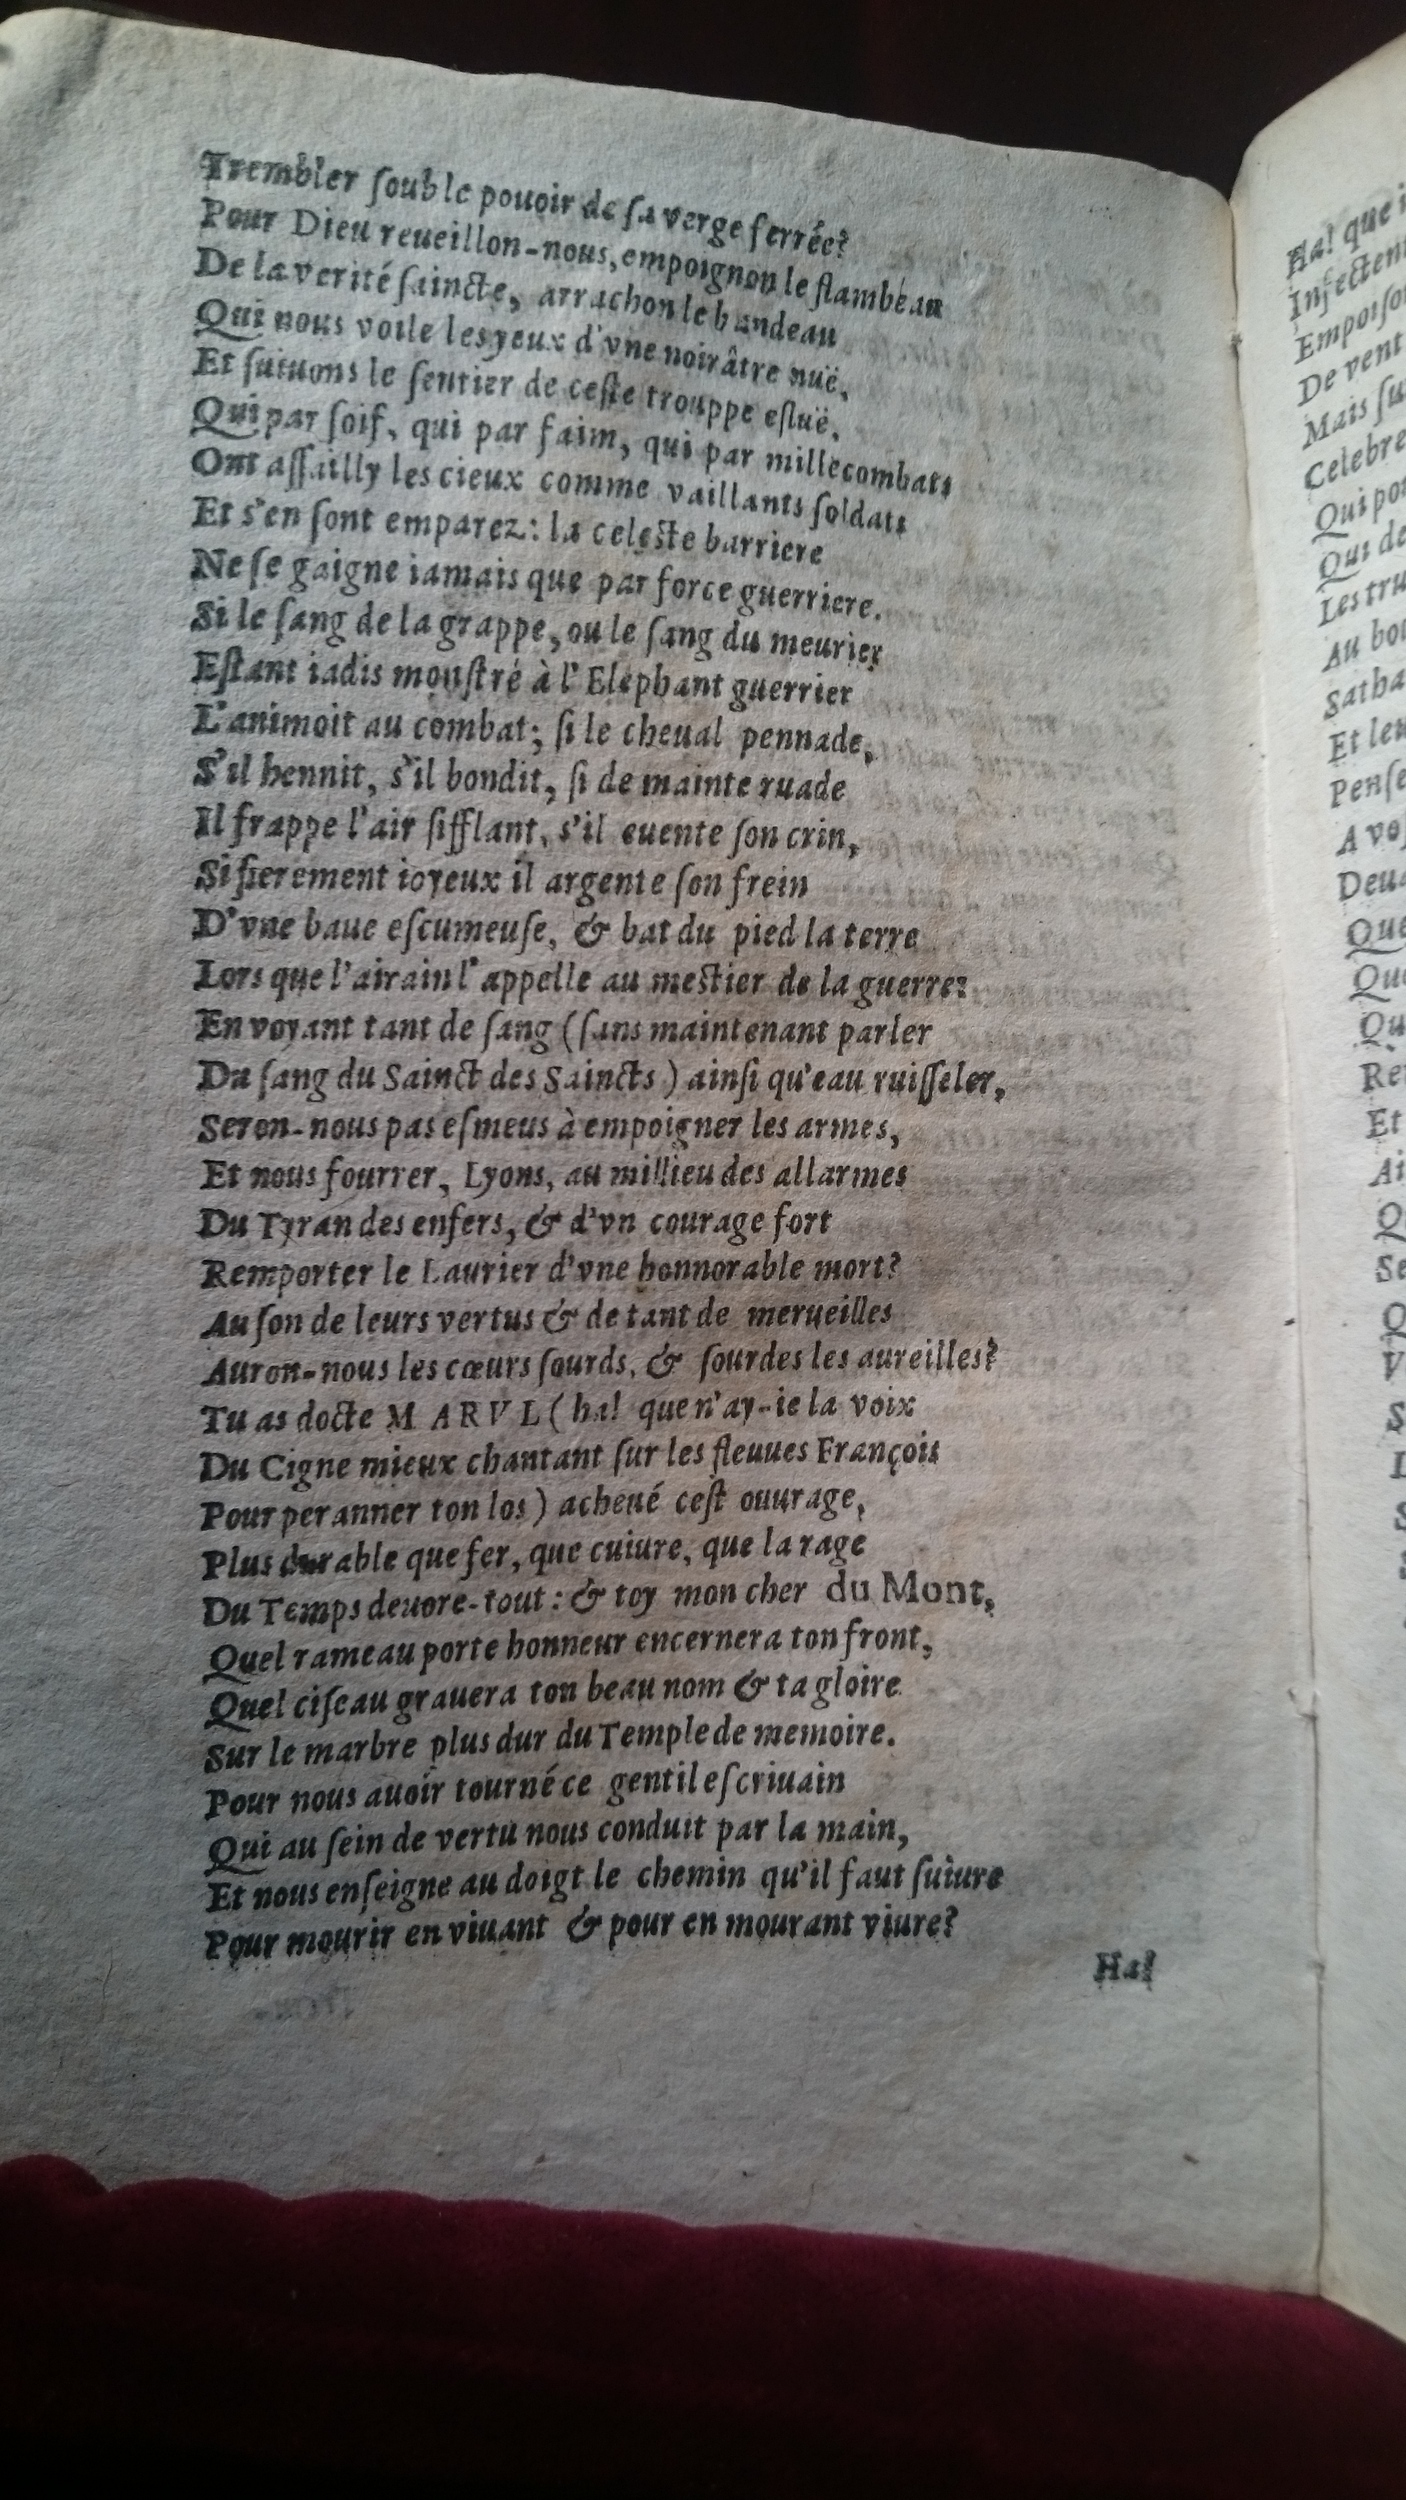 Trembler ſoub le pouoir de ſa verge ferrée?
Pour Dieu reueillon-nous, empoignon le flambeau
De la verité ſaincte, arrachon le bandeau
Qui nous voile les yeux d'vne noirâtre nuë,
Et ſuiuons le ſentier de ceſte trouppe eſluë,
Qui par ſoif, qui par faim, qui par mille combats
Ont aſſailly les cieux comme vaillants ſoldats
Et s'en ſont emparez: la celeſte barriere
Ne ſe gaigne iamais que par force guerriere.
Si le ſang de la grappe, ou le ſang du meurier
Eſtant iadis monſtré à l'Elephant guerrier
L'animoit au combat; ſi le cheual pennade,
S'il hennit, s'il bondit, ſi de mainte ruade
Il frappe l'air ſifflant, s'il euente ſon crin,
Si fierement ioyeux il argente ſon frein
D'vne baue eſcumeuſe, & bat du pied la terre
Lors que l'airain l'appelle au meſtier de la guerre:
En voyant tant de ſang (ſans maintenant parler
Du ſang du Sainct des Saincts) ainſi qu'eau ruiſſeler,
Seron-nous pas eſmeus à empoigner les armes,
Et nous fourrer, Lyons, au millieu des allarmes
Du Tyran des enfers, & d'vn courage fort
Remporter le Laurier d'vne honnorable mort?
Au ſon de leurs vertus & de tant de merueilles
Auron-nous les cœurs ſourds, & ſourdes les aureilles?
Tu as docte MARVL (ha! que n'ay-ie la voix
Du Cigne mieux chantant ſur les fleuues François
Pour peranner ton los) acheué ceſt ouurage,
Plus durable que fer, que cuiure, que la rage
Du Temps deuore-tout: & toy mon cher du Mont,
Quel rameau porte honneur encernera ton front,
Quel ciſeau grauera ton beau nom & ta gloire
Sur le marbre plus dur du Temple de memoire.
Pour nous auoir tourné ce gentil eſcriuain
Qui au ſein de vertu nous conduit par la main,
Et nous enſeigne au doigt le chemin qu'il faut ſuiure
Pour mourir en viuant & pour en mourant viure?
Ha!
Ha! que
De vent
Mais
Qui
Qui de
Au
Et
A
Que
Et